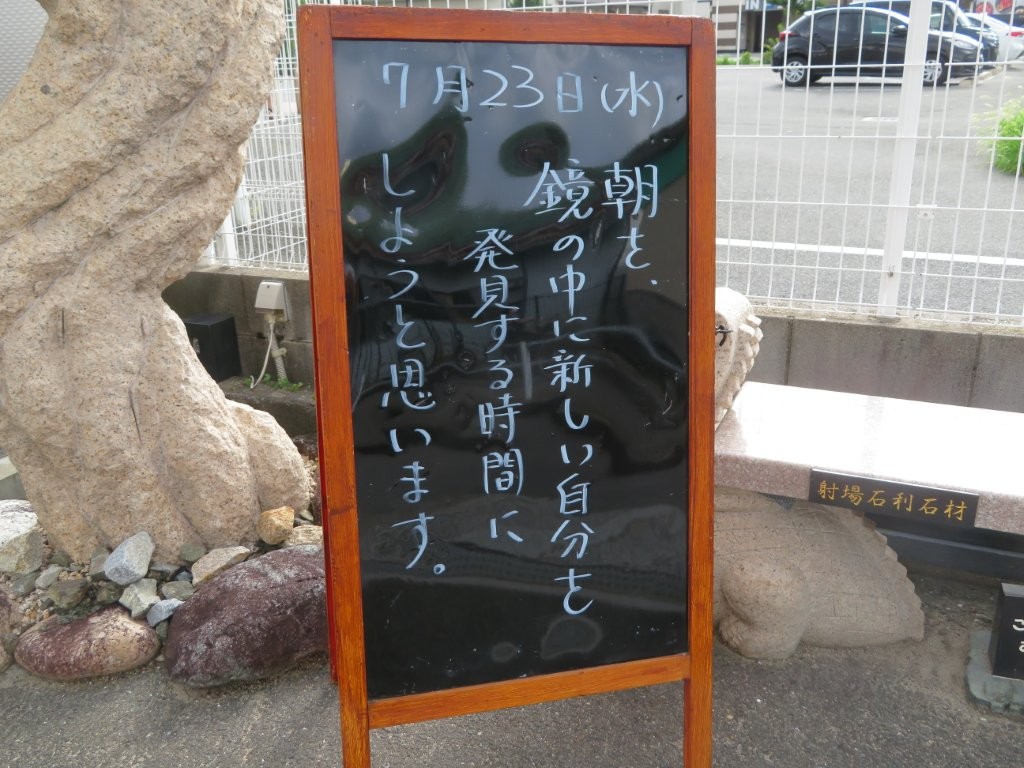 7月23日(水)
朝を、
鏡の中に新しい自分を
発見する時間に
しようと思います。
射場石利石材
こ